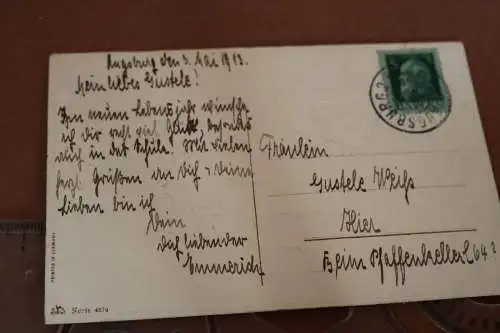 Augsburg den 3. Mai 1913.
Mein liebes Gustele!
Im neuen Lebensjahr wünsche
ich Dir recht viel Glück, besonders
auch in der Schule. Mit vielen
herzl. Grüßen an Dich & Deine
Lieben bin ich
Dein
Dich liebender
Emmerich
Fräulein
Gustele Weiß
Hier
Beim Pfaffenkeller C 64
AUGSBURG 2
PRINTED IN GERMANY
Serie 487a